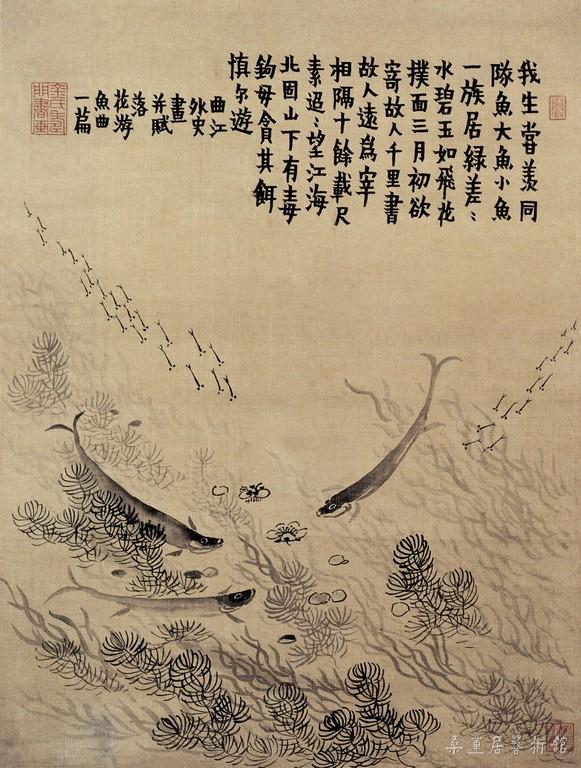 我生嘗羨同
隊魚大魚小魚
一族居緑差〻
水碧玉如飛花
撲面三月初欲
寄故人千里書
故人遠爲宰
相隔十餘載尺
素迢〻望江海
北固山下有毒
鉤毋貪其餌
慎尔遊
曲江
外史
畫
并賦
落
花游
魚曲
一篇
桑蓮居藝術館